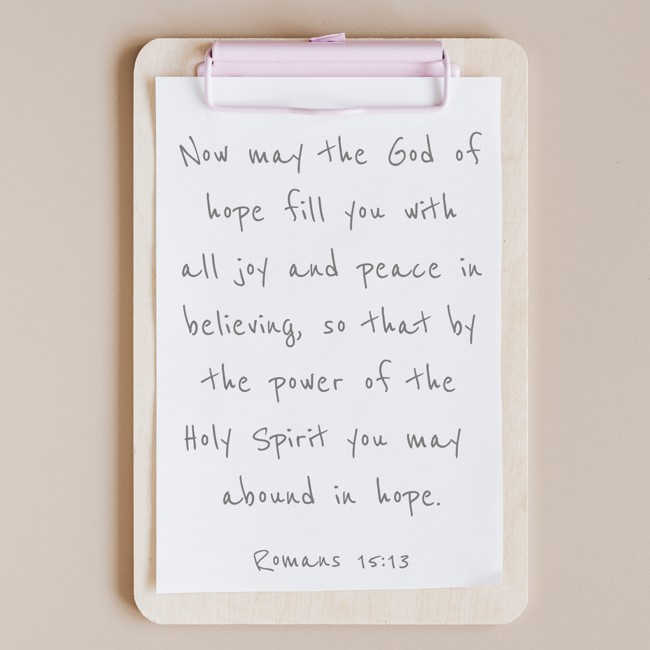 Now may the God of
hope fill you with
all joy and peace in
believing, so that by
the power of the
Holy Spirit you may
abound in hope.
Romans 15:13